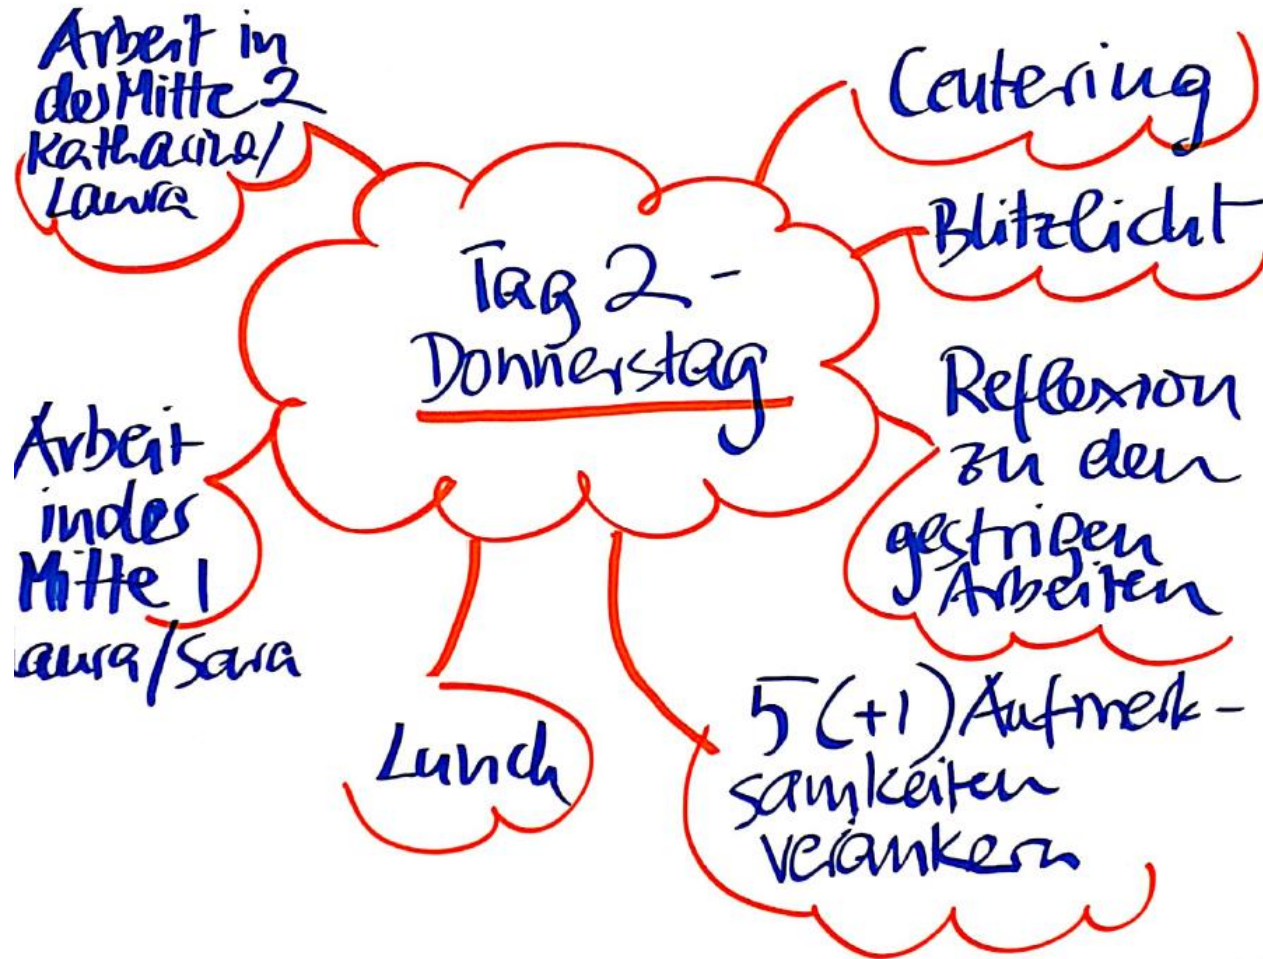 Tag 2 -
Donnerstag
Centering
Blitzlicht
Reflexion
zu den
gestrigen
Arbeiten
5 (+1) Aufmerk-
samkeiten
verankern
Lunch
Arbeit
in der
Mitte 1
aura/Sara
Arbeit in
der Mitte 2
Katharina/
Laura